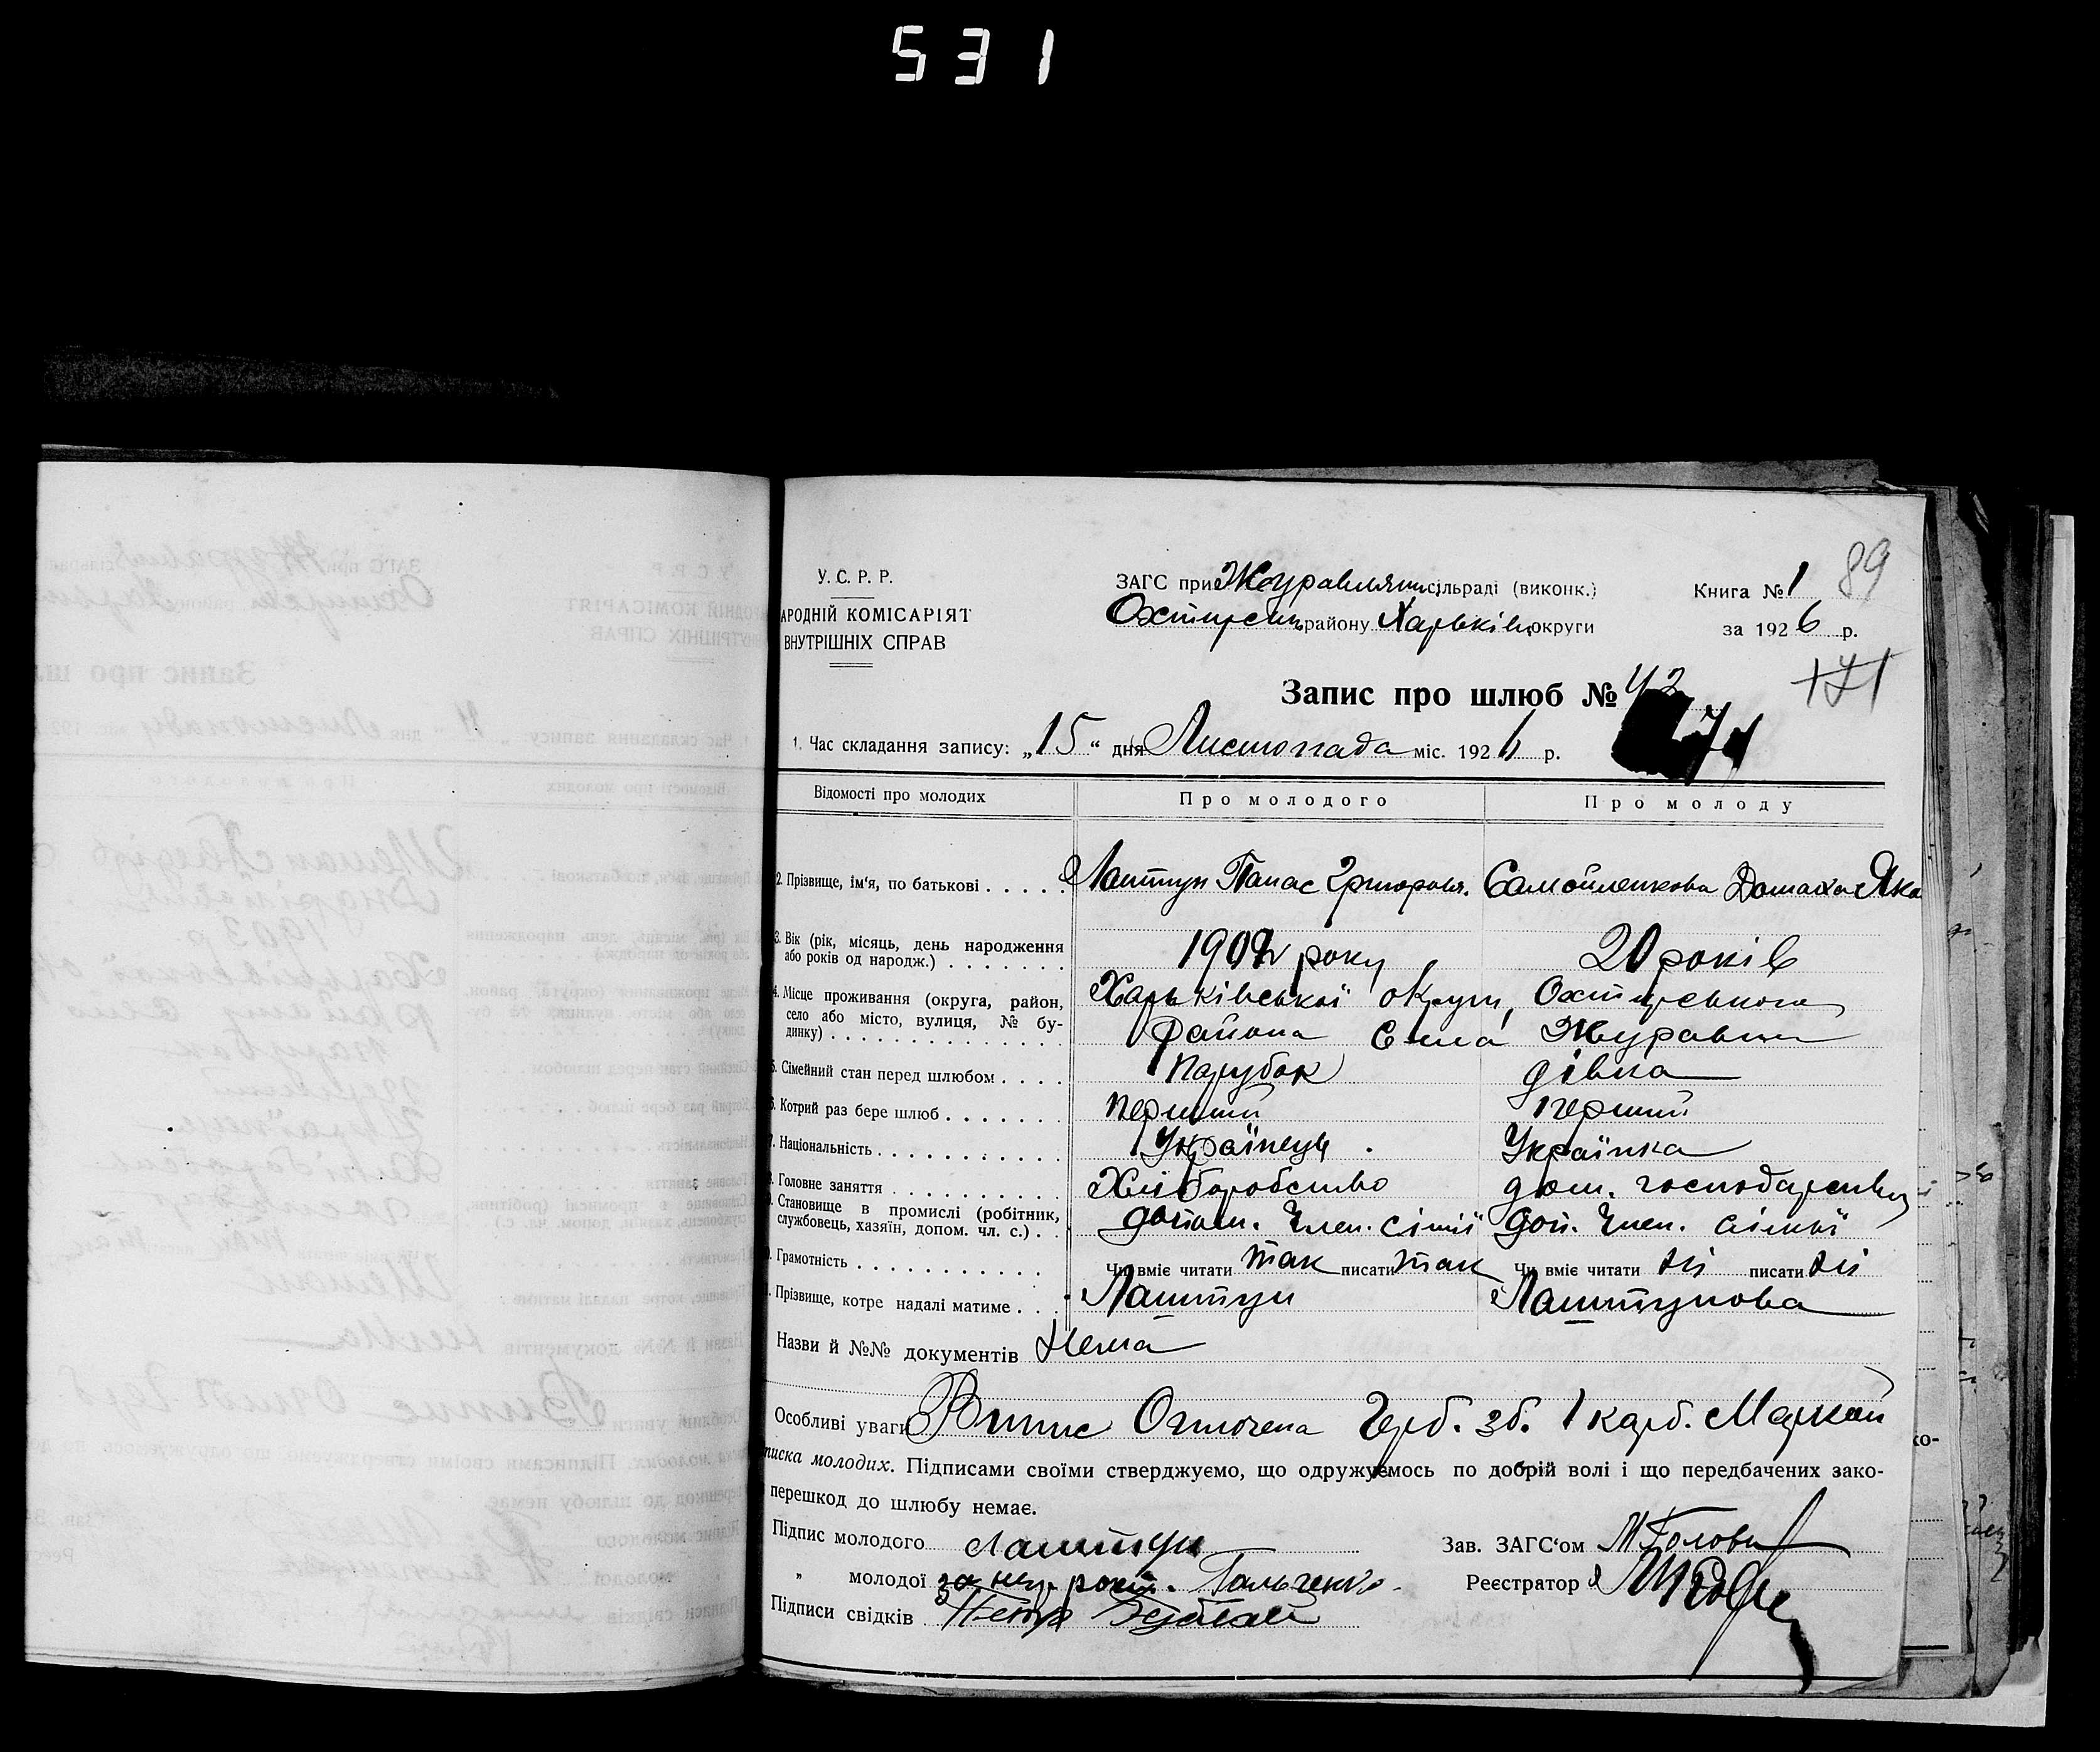 531
89
У. С. Р. Р.
АРОДНІЙ КОМІСАРІЯТ
ВНУТРІШНІХ СПРАВ
ЗАГС при Журавлянск. сільраді (виконк.)
Охтирськ. району Харьківськ. округи
Книга № 1
за 1926 р.
Запис про шлюб № 42
71
171
1. Час складання запису: „15“ дня Листопада міс. 1926 р.
Відомості про молодих Про молодого Про молоду
2. Прізвище, ім‘я, по батькові Лаштун Панас Григоров. Самойленкова Домаха Яко
3. Вік (рік, місяць, день народження
або років од народж.) 1907 року 20 років
4. Місце проживання (округа, район, Харьківської округи, Охтирського
село або місто, вулиця, № бу-
динку) района Села Журавни
5. Сімейний стан перед шлюбом Парубок дівка
6. Котрий раз бере шлюб перший перший
7. Національність Українець. Українка
8. Головне заняття Хліборобство дом. господарство
9. Становище в промислі (робітник,
службовець, хазяїн, допом. чл. с.) допом. Член. сімії доп. Член. сімьї
10. Грамотність Чи вміє читати так писати так Чи вміє читати ні писати ні
. Прізвище, котре надалі матиме Лаштун Лаштунова
Назви й №№ документів Нема
Особливі уваги Випис Оплочена Герб. зб. 1 карб. Маркой
писка молодих. Підписами своїми стверджуємо, що одружуємось по добрій волі і що передбачених зако-
перешкод до шлюбу немає.
Підпис молодого Лаштун
Зав. ЗАГС‘ом
„ молодої за неї розп. Гальченко.
Реєстратор
Підписи свідків